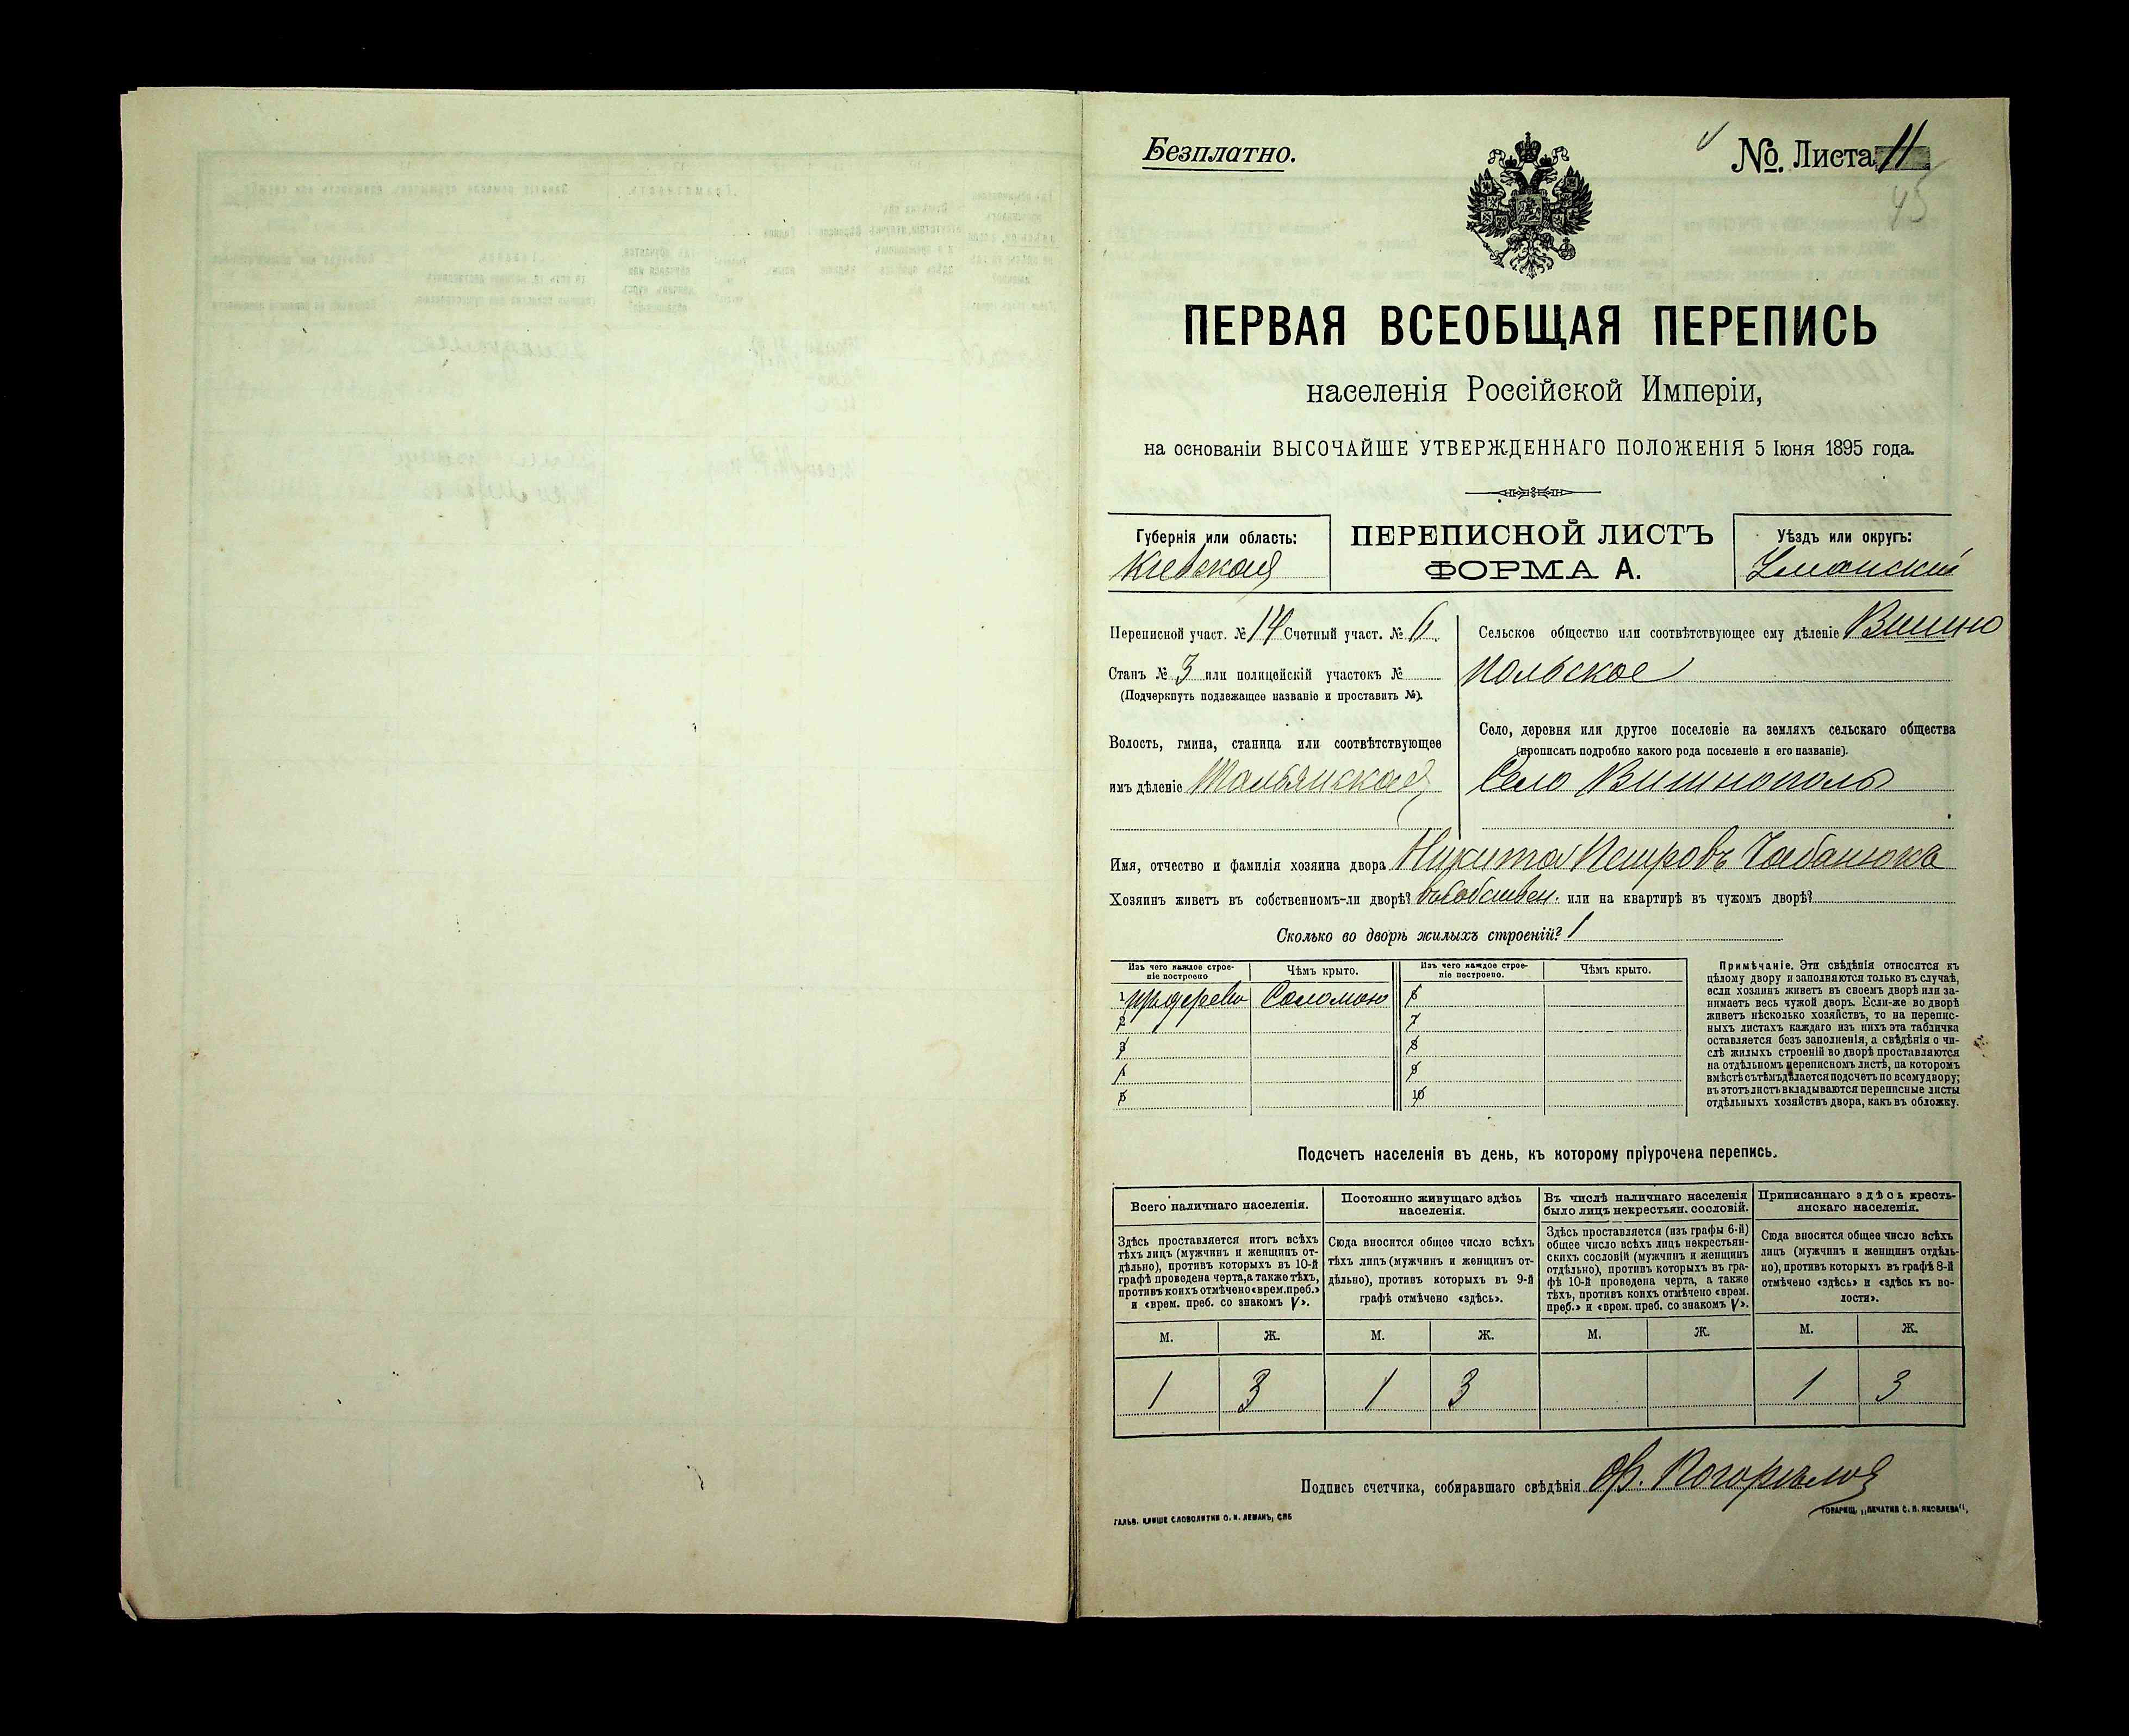 Безплатно.
№ Листа 11
45
ПЕРВАЯ ВСЕОБЩАЯ ПЕРЕПИСЬ
населенія Россійской Имперіи,
на основаніи ВЫСОЧАЙШЕ УТВЕРЖДЕННАГО ПОЛОЖЕНІЯ 5 Іюня 1895 года.
Губернія или область:
Кіевская
ПЕРЕПИСНОЙ ЛИСТЪ
ФОРМА А.
Уѣздъ или округъ:
Уманскій
Переписной участ. № 14 Счетный участ. № 6
Станъ № 3 или полицейскій участокъ №
(Подчеркнуть подлежащее названіе и проставить №).
Волость, гмина, станица или соотвѣтствующее
имъ дѣленіе Тальянская
Сельское общество или соотвѣтствующее ему дѣленіе Вишно
польское
Село, деревня или другое поселеніе на земляхъ сельскаго общества
(прописать подробно какого рода поселеніе и его названіе).
Село Вишнополь
Имя, отчество и фамилія хозяина двора Никита Петровъ Чабанюкъ
Хозяинъ живетъ въ собственномъ-ли дворѣ? въ собствен. или на квартирѣ въ чужомъ дворѣ?
Сколько во дворѣ жилыхъ строеній? 1
Изъ чего каждое строе-
ніе построено
Чѣмъ крыто.
Изъ чего каждое строе-
ніе построено.
Чѣмъ крыто.
1 Соломою 6
2 7
3 8
4 9
5 10
Примѣчаніе. Эти свѣдѣнія относятся къ
цѣлому двору и заполняются только въ случаѣ,
если хозяинъ живетъ въ своемъ дворѣ или за-
нимаетъ весь чужой дворъ. Если-же во дворѣ
живетъ нѣсколько хозяйствъ, то на перепис-
ныхъ листахъ каждаго изъ нихъ эта табличка
оставляется безъ заполненія, а свѣдѣнія о чи-
слѣ жилыхъ строеній во дворѣ проставляются
на отдѣльномъ переписномъ листѣ, на которомъ
вмѣстѣ съ тѣмъ дѣлается подсчетъ по всему двору;
въ этотъ листъ вкладываются переписные листы
отдѣльныхъ хозяйствъ двора, какъ въ обложку.
Подсчетъ населенія въ день, къ которому пріурочена перепись.
Всего наличнаго населенія.
Здѣсь проставляется итогъ всѣхъ
тѣхъ лицъ (мужчинъ и женщинъ от-
дѣльно), противъ которыхъ въ 10-й
графѣ проведена черта, а также тѣхъ,
противъ коихъ отмѣчено «врем. преб.»
и «врем. преб. со знакомъ V».
Постоянно живущаго здѣсь
населенія.
Сюда вносится общее число всѣхъ
тѣхъ лицъ (мужчинъ и женщинъ от-
дѣльно), противъ которыхъ въ 9-й
графѣ отмѣчено «здѣсь».
Въ числѣ наличнаго населенія
было лицъ некрестьян. сословій.
Здѣсь проставляется (изъ графы 6-й)
общее число всѣхъ лицъ некрестьян-
скихъ сословій (мужчинъ и женщинъ
отдѣльно), противъ которыхъ въ гра-
фѣ 10-й проведена черта, а также
тѣхъ, противъ коихъ отмѣчено «врем.
преб.» и «врем. преб. со знакомъ V».
Приписаннаго здѣсь кресть-
янскаго населенія.
Сюда вносится общее число всѣхъ
лицъ (мужчинъ и женщинъ отдѣль-
но), противъ которыхъ въ графѣ 8-й
отмѣчено «здѣсь» и «здѣсь къ во-
лости».
М. Ж. М. Ж. М. Ж. М. Ж.
1 3 1 3 1 3
Подпись счетчика, собиравшаго свѣдѣнія
ГАЛЬВ. КЛИШЕ СЛОВОЛИТНИ О. И. ЛЕМАНЪ, СПБ
ТОВАРИЩ. „ПЕЧАТНЯ С. П. ЯКОВЛЕВА“,